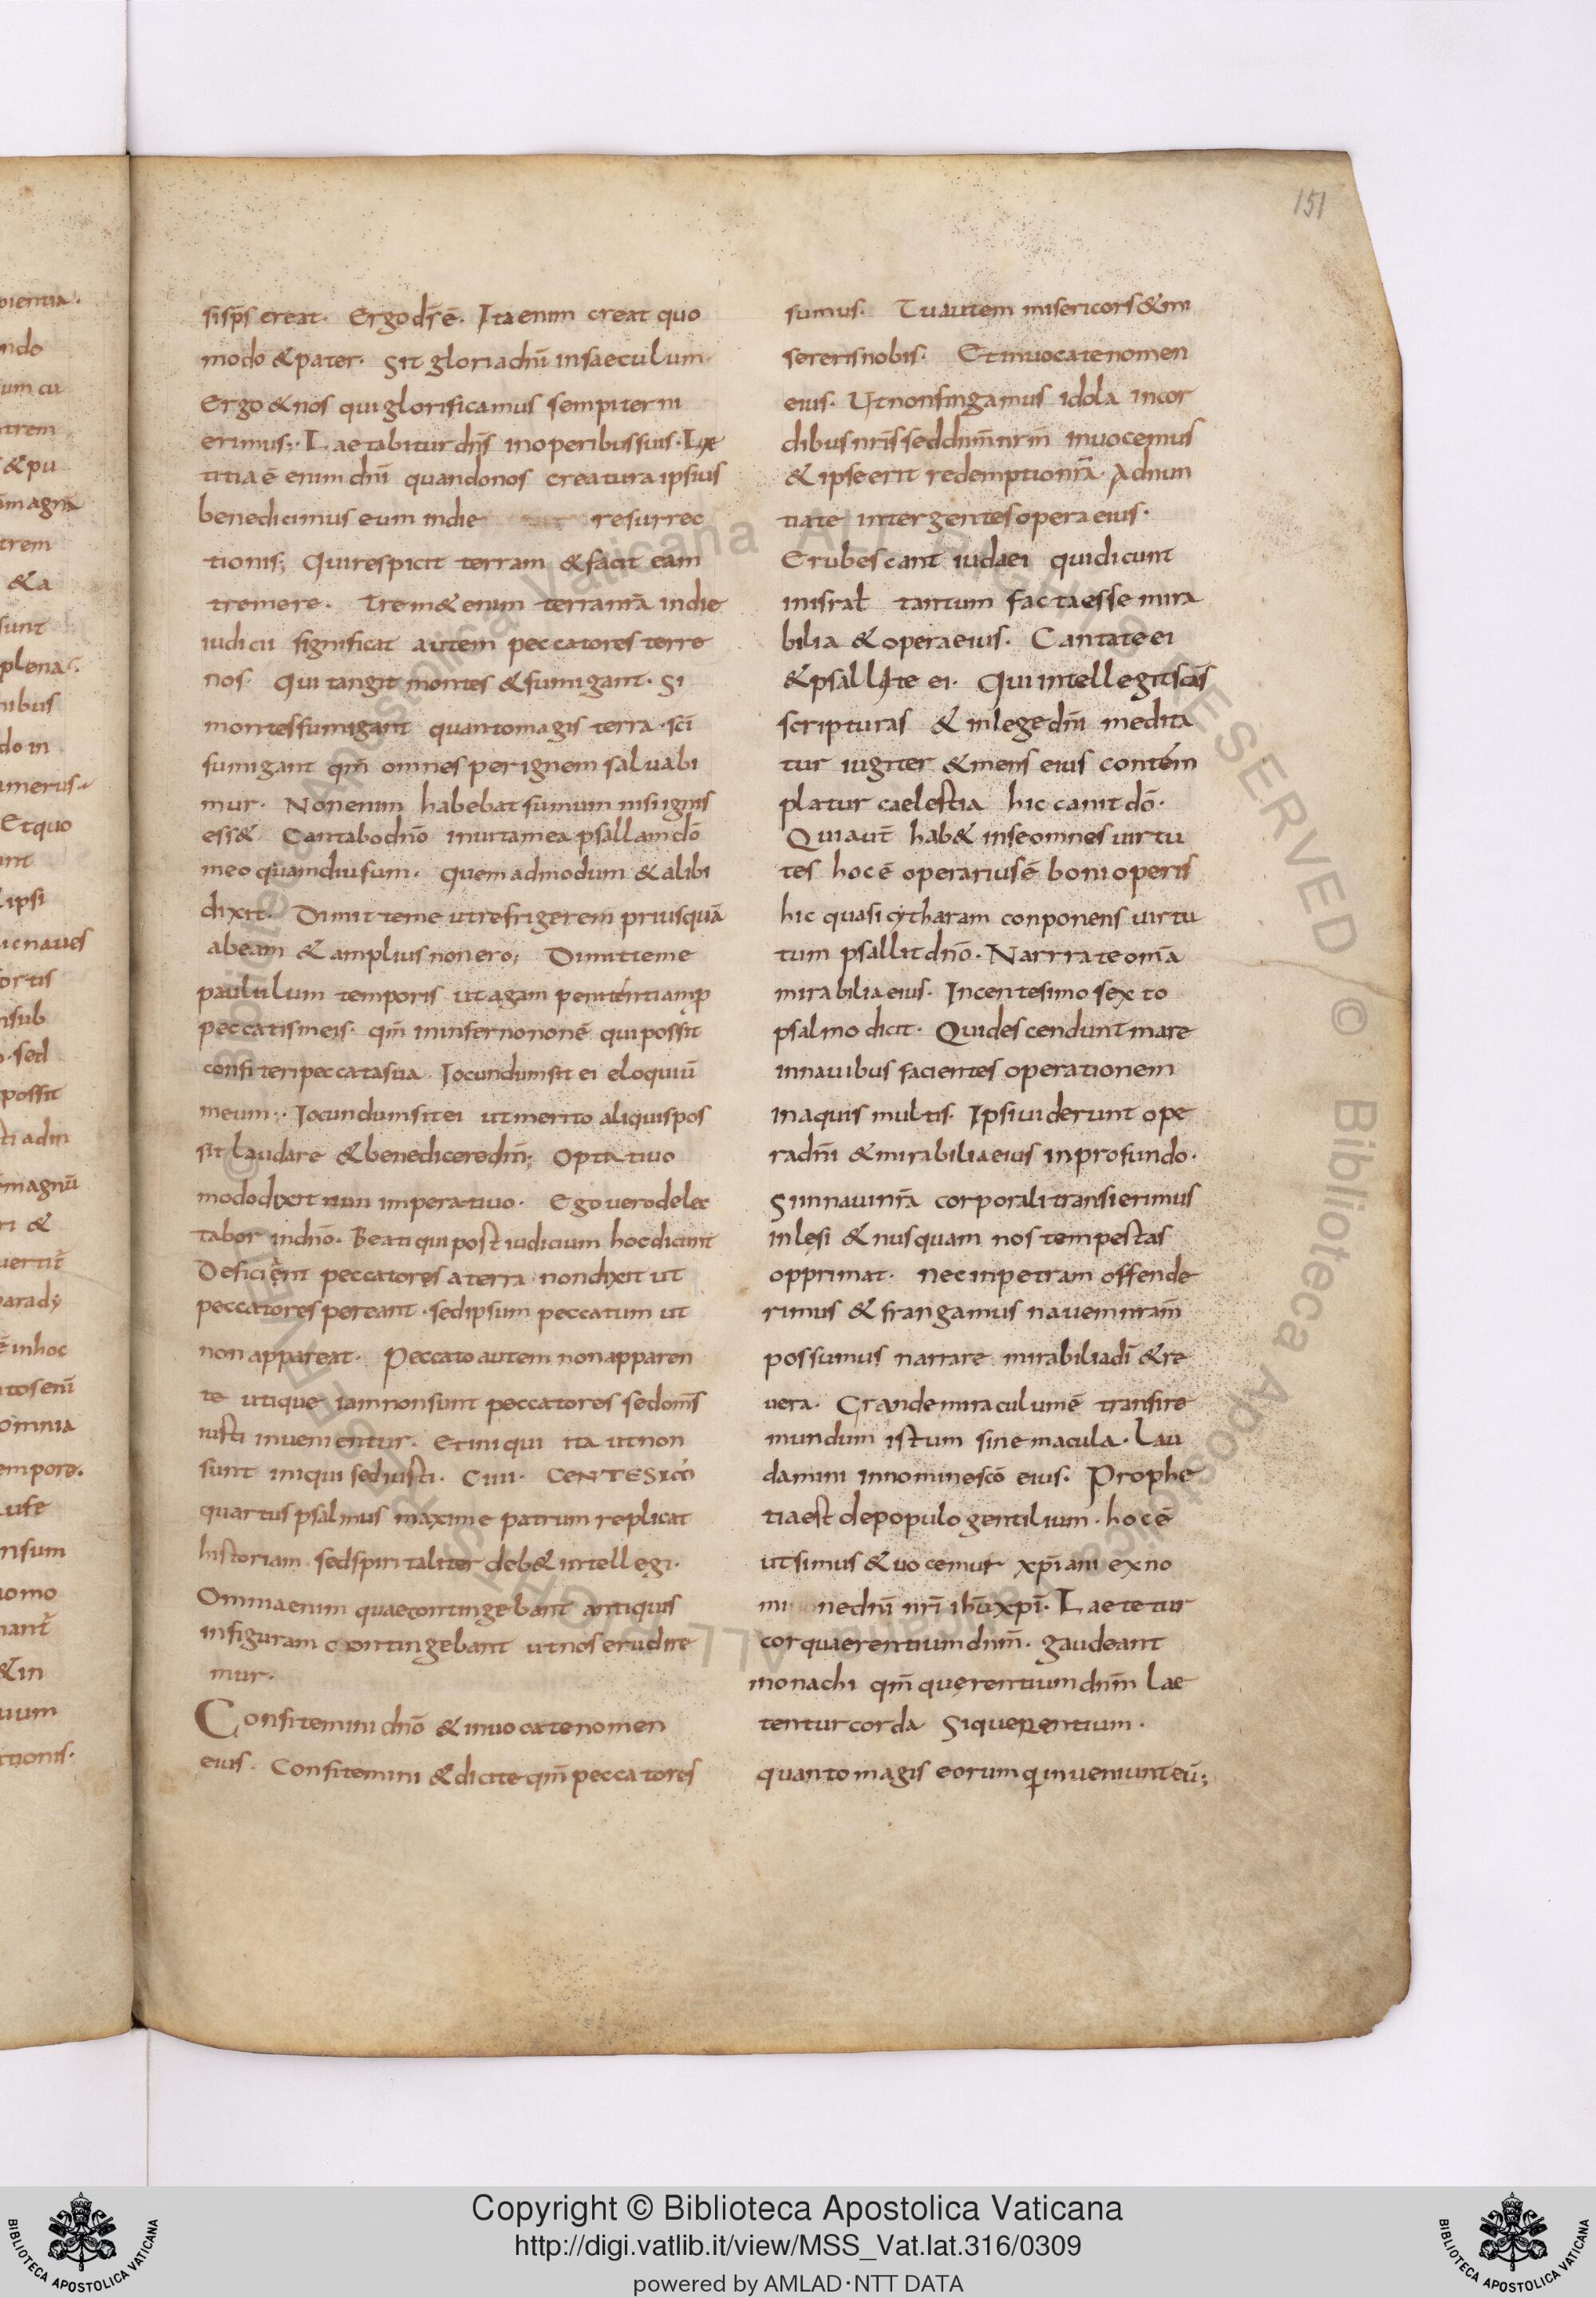 151
sisp̄s creat. Ergo dr̄ ē. Ita enim creat quo
modo & pater. Sit gloria dn̄i in saeculum.
Ergo & nos qui glorificamus sempiterni
erimus;. Laetabitur dn̄s in operibus suis. Lae
titia ē enim dn̄i quando nos creatura ipsius
benedicimus eum in die resurrec
tionis; Qui respicit terram & facit eam
tremere. Trem& enim terra nr̄a in die
iudicii significat autem peccatores terre
nos. Qui tangit montes & fumigant. Si
montes fumigant quanto magis terra. sc̄i
fumigant qm̄ omnes per ignem salvabi
mur. Non enim habebat fumum nisi ignis
ess& Cantabo dn̄o in vita mea psallam dō
meo quamdiu sum. Quemadmodum & alibi
dixit. Dimitte me ut refrigerem priusquā
abeam & amplius non ero; Dimitte me
paululum temporis ut agam penitentiam p
peccatis meis. qm̄ in inferno non ē qui possit
confiteri peccata sua. Iocundum sit ei eloquiū
meum;. Iocundum sit ei ut merito aliquis pos
sit laudare & benedicere dn̄m; Optativo
modo dixit non imperativo. Ego vero delec
tabor in dn̄o. Beati qui post iudicium hoc dicunt
Deficient peccatores a terra non dixit ut
peccatores pereant. sed ipsum peccatum ut
non appareat. Peccato autem non apparen
te utique iam non sunt peccatores sed om̄s
iusti invenientur. Et iniqui ita ut non
sunt iniqui sed iusti. CIIII. CENTESIMO
quartus psalmus maxime patrum replicat
historiam. sed spiritaliter deb& intellegi.
Omnia enim quae contingebant antiquis
in figuram contingebant ut nos erudire
mur.
Confitemini dn̄o & invocate nomen
eius. Confitemini & dicite qm̄ peccatores
sumus. Tu autem misericors & mi
sereris nobis. Et invocate nomen
eius. Ut non fingamus idola in cor
dibus nr̄is sed dn̄m nr̄m invocemus
& ipse erit redemptio nr̄a. Adnun
tiate inter gentes opera eius.
Erubescant iudaei qui dicunt
in isral̄ tantum facta esse mira
bilia & opera eius. Cantate ei
& psallite ei. Qui intellegit sc̄as
scripturas & in lege dn̄i medita
tur iugiter & mens eius contem
platur caelestia hic canit dō.
Qui aut̄ hab& in se omnes virtu
tes hoc ē operarius ē boni operis
hic quasi cytharam conponens virtu
tum psallit dn̄o. Narrrate om̄a
mirabilia eius. In centesimo sexto
psalmo dicit. Qui descendunt mare
in navibus facientes operationem
in aquis multis. Ipsi viderunt ope
ra dn̄i & mirabilia eius in profundo.
Si in navi nr̄a corporali transierimus
inlęsi & nusquam nos tempestas
opprimat. nec in petram offende
rimus & frangamus navem nr̄am
possumus narrare mirabilia dī & re
vera. Grande miraculum ē transire
mundum istum sine macula. Lau
damini in nomine sc̄o eius. Prophe
tia est de populo gentilium. hoc ē
ut simus & vocemur xp̄iani ex no
mi ne dn̄i nr̄i ih̄u xp̄i. Laetetur
cor quaerentium dn̄m. gaudeant
monachi qm̄ quęrentium dn̄m lae
tentur corda Si querentium.
quanto magis eorum q̄ inveniunt eū;
Copyright © Biblioteca Apostolica Vaticana
http://digi.vatlib.it/view/MSS_Vat.lat.316/0309
powered by AMLAD·NTT DATA
BIBLIOTECA APOSTOLICA VATICANA
BIBLIOTECA APOSTOLICA VATICANA